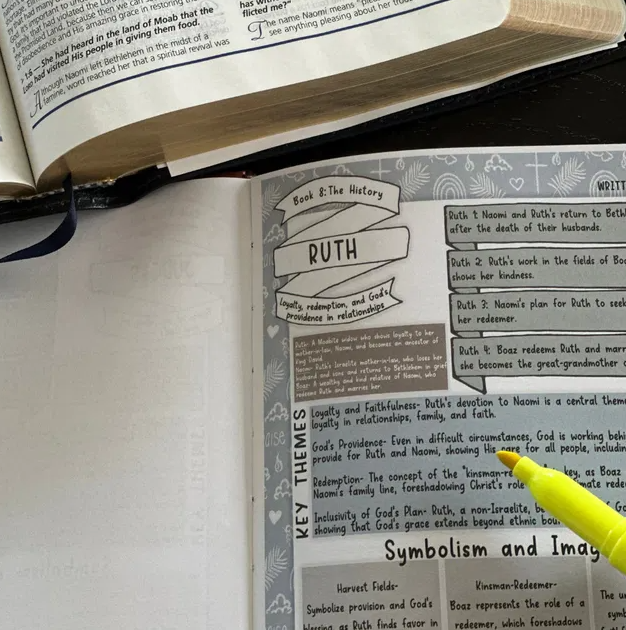 the Promised Land, because then we can
of disobedience and His amazing grace in restoring
1:6 She had heard in the land of Moab that the
LORD had visited His people in giving them food.
Although Naomi left Bethlehem in the midst of a
famine, word reached her that a spiritual revival was
flicted me?"
The name Naomi means
see anything pleasing about her
Book 8: The History
RUTH
Loyalty, redemption, and God's
providence in relationships
Ruth- A Moabite widow who shows loyalty to her
mother-in-law, Naomi, and becomes an ancestor of
King David.
Naomi- Ruth's Israelite mother-in-law, who loses her
husband and sons and returns to Bethlehem in grief
Boaz- A wealthy and kind relative of Naomi, who
redeems Ruth and marries her.
WRITT
Ruth 1: Naomi and Ruth's return to Bethl
after the death of their husbands.
Ruth 2: Ruth's work in the fields of Boa
shows her kindness.
Ruth 3: Naomi's plan for Ruth to seek
her redeemer.
Ruth 4: Boaz redeems Ruth and marr
she becomes the great-grandmother
KEY THEMES
Loyalty and Faithfulness- Ruth's devotion to Naomi is a central theme
loyalty in relationships, family, and faith.
God's Providence- Even in difficult circumstances, God is working behi
provide for Ruth and Naomi, showing His care for all people, includin
Redemption- The concept of the "kinsman-re key, as Boaz
Naomi's family line, foreshadowing Christ's role
Inclusivity of God's Plan- Ruth, a non-Israelite, be
showing that God's grace extends beyond ethnic bou
Symbolism and Imag
Harvest Fields-
Symbolize provision and God's
blessing, as Ruth finds favor in
Kinsman-Redeemer-
Boaz represents the role of a
redeemer, which foreshadows
The